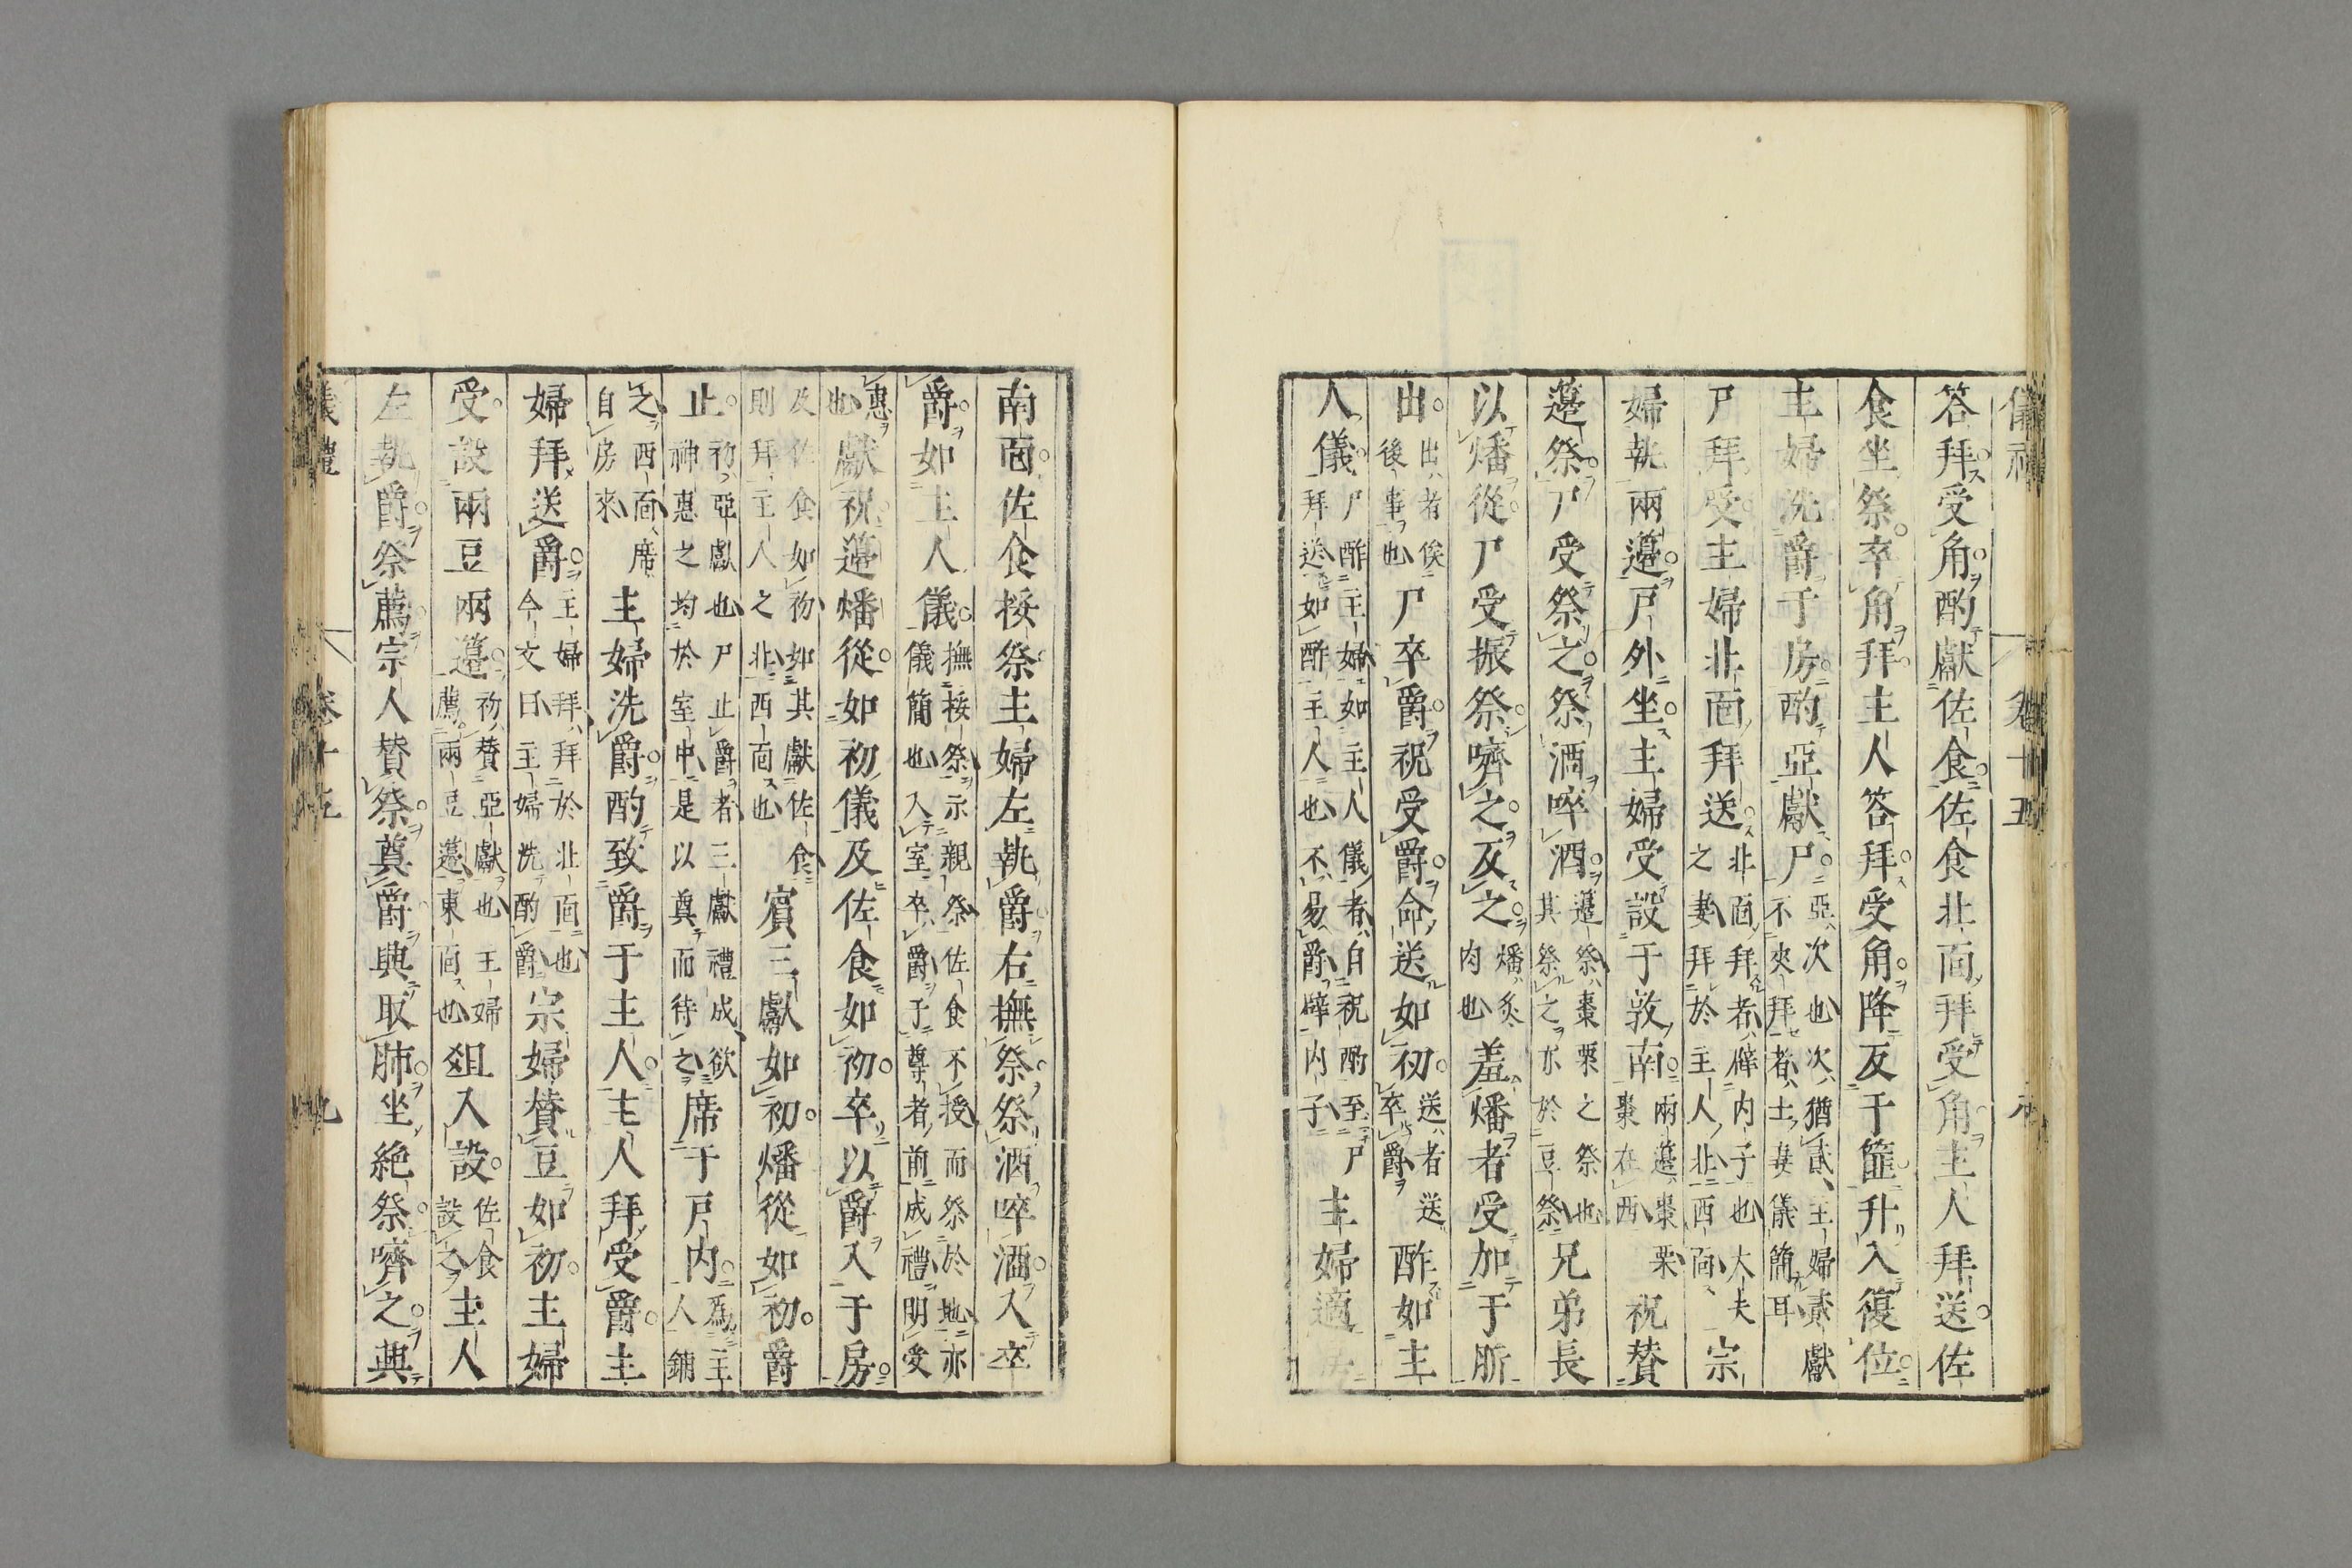 儀禮 卷十五 八
答拜受角酌獻佐食佐食北面拜受角主人拜送佐
食坐祭卒角拜主人答拜受角降反于篚升入復位
主婦洗爵于房酌亞獻尸亞次也次猶貳主婦貳獻不夾拜者士妻儀簡耳
尸拜受主婦北面拜送北面拜者辟內子也大夫之妻拜於主人北西面宗
婦執兩籩戸外坐主婦受設于敦南兩籩棗栗棗在西祝贊
籩祭尸受祭之祭酒啐酒籩祭棗栗之祭也其祭祭之亦於豆祭兄弟長
以燔從尸受振祭嚌之反之燔炙肉也羞燔者受加于肵
出出者俟後事也尸卒爵祝受爵命送如初送者送卒爵酢如主
人儀尸酢主婦如主人儀者自祝酌至尸拜送如酢主人也不易爵辟内子主婦適房
南面佐食挼祭主婦左執爵右撫祭祭酒啐酒入卒
爵如主人儀撫挼祭示親祭佐食不授而祭於地亦儀簡也入室卒爵于尊者前成禮明受
惠也獻祝籩燔從如初儀及佐食如初卒以爵入于房
及佐食如初如其獻佐食則拜主人之北西面也賓三獻如初燔從如初爵
止初亞獻也尸止爵者三獻禮成欲神惠之均於室中是以奠而待之席于戸內為主人鋪
之西面席自房來主婦洗爵酌致爵于主人主人拜受爵主
婦拜送爵主婦拜拜於北面也今文曰主婦洗酌爵宗婦贊豆如初主婦
受設兩豆兩籩初贊亞獻也主婦薦兩豆籩東面也俎入設佐食設之主人
左執爵祭薦宗人贊祭奠爵興取肺坐絕祭嚌之興
儀禮 卷十五 九